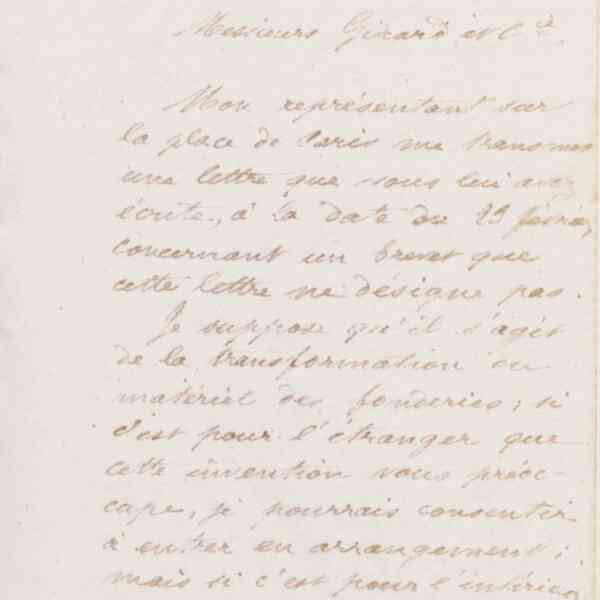 Messieurs Girard et Cie.
Mon représentant sur
la place de Paris me transmet
une lettre que vous lui avez
écrite, à la date du 23 février,
concernant un brevet que
cette lettre ne désigne pas.
Je suppose qu'il s'agit
de la transformation du
matériel des fonderies ; si
c'est pour l'étranger que
cette invention vous préoc-
cupe, je pourrais consentir
à entrer en arrangement ;
mais si c'est pour l'intérieur